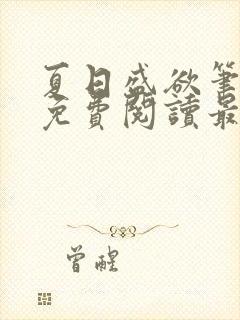 夏日盛欲筆
免費閱讀最
曾醒